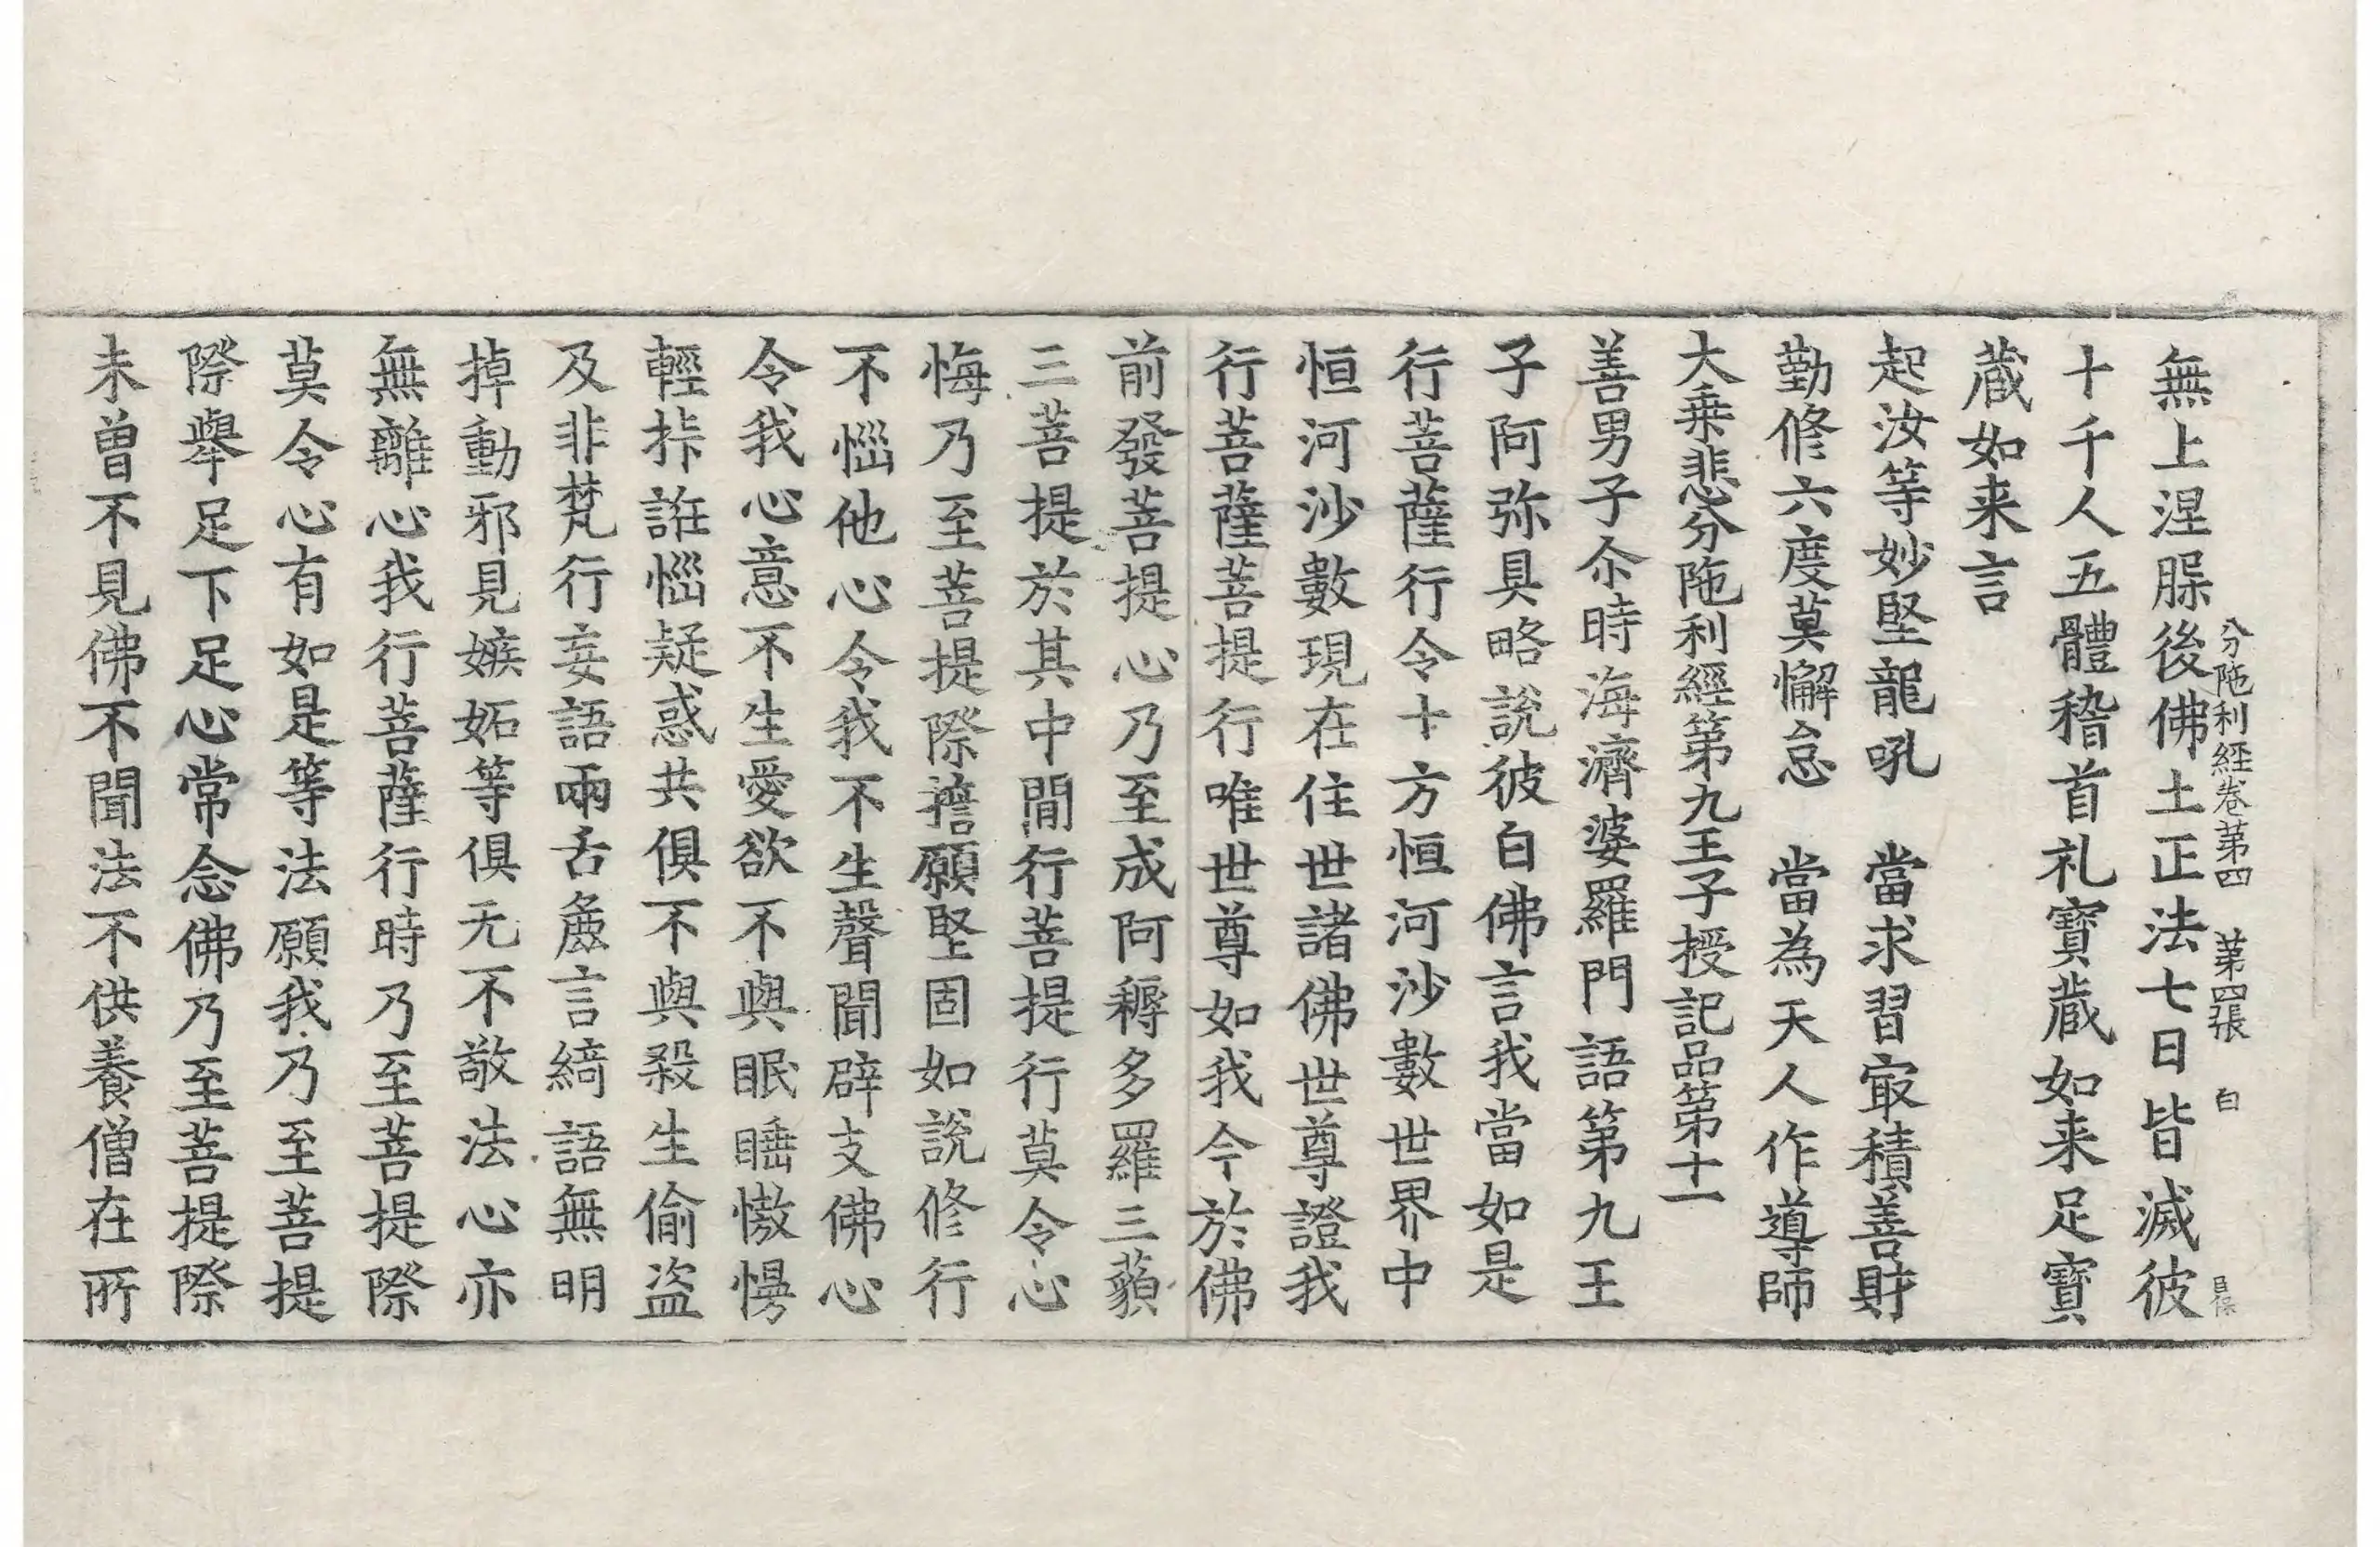 分陁利経卷苐四　苐四張　白
無上涅脲後佛土正法七日皆滅彼
十千人五體稽首礼寳蔵如来足寳
蔵如来言
起汝等妙堅龍吼　當求習冣積善財
勤修六度莫懈怠　當為天人作導師
大乗悲分陁利經第九王子授記品第十一
善男子尒時海濟婆羅門語第九王
子阿弥具略說彼白佛言我當如是
行菩薩行令十方恒河沙數世界中
恒河沙數現在住世諸佛世尊證我
行菩薩菩提行唯世尊如我今於佛
前發菩提心乃至成阿耨多羅三藐
三菩提於其中間行菩提行莫令心
悔乃至菩提際擔願堅固如說修行
不惱他心令我不生聲聞辟支佛心
令我心意不生愛欲不與眠睡憿慢
輕抃誑惱疑惑共俱不與殺生偷盗
及非梵行妄語兩舌麁言綺語無明
掉動邪見嫉妬等俱无不敬法心亦
無離心我行菩薩行時乃至菩提際
莫令心有如是等法願我乃至菩提
際舉足下足心常念佛乃至菩提際
未曽不見佛不聞法不供養僧在所